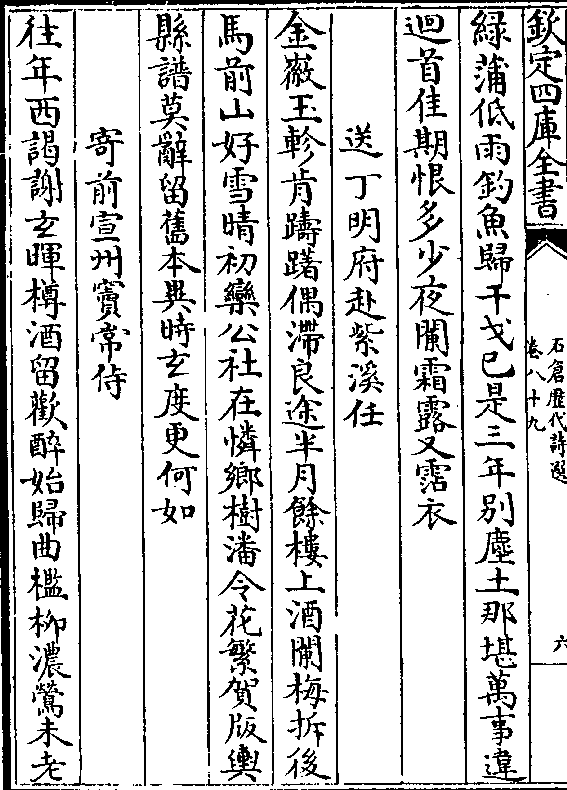 欽定四庫全書
石倉歷代詩選
卷八十九
六
綠蒲低雨釣魚歸干戈已是三年别塵土那堪萬事違
迴首佳期恨多少夜闌霜露又霑衣
送丁明府赴紫溪任
金徽玉軫肯躊躇偶滯良途半月餘樓上酒闌梅拆後
馬前山好雪晴初欒公社在憐鄉樹潘令花繁賀版輿
縣譜莫辭留舊本異時玄度更何如
寄前宣州竇常侍
往年西謁謝玄暉樽酒留歡醉始歸曲檻柳濃鶯未老